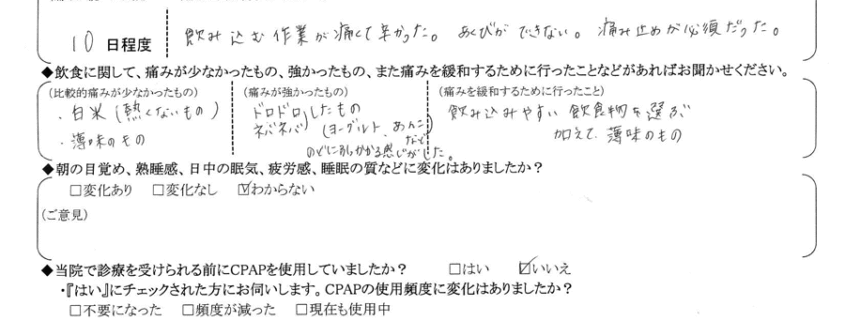 10 日程度
飲み込む作業が痛くて辛かった。あくびができない。痛み止めが必須だった。
◆飲食に関して、痛みが少なかったもの、強かったもの、また痛みを緩和するために行ったことなどがあればお聞かせください。
(比較的痛みが少なかったもの)
・白米(熱くないもの)
・薄味のもの
(痛みが強かったもの)
ドロドロ
ネバネバ したもの
(ヨーグルト、あんこ
など)
のどに引っかかる感じがした。
(痛みを緩和するために行ったこと)
飲み込みやすい飲食物を選ぶ
加えて、薄味のもの
◆朝の目覚め、熟睡感、日中の眠気、疲労感、睡眠の質などに変化はありましたか?
□変化あり □変化なし ☑わからない
(ご意見)
◆当院で診療を受けられる前にCPAPを使用していましたか? □はい ☑いいえ
・『はい』にチェックされた方にお伺いします。CPAPの使用頻度に変化はありましたか?
□不要になった □頻度が減った □現在も使用中